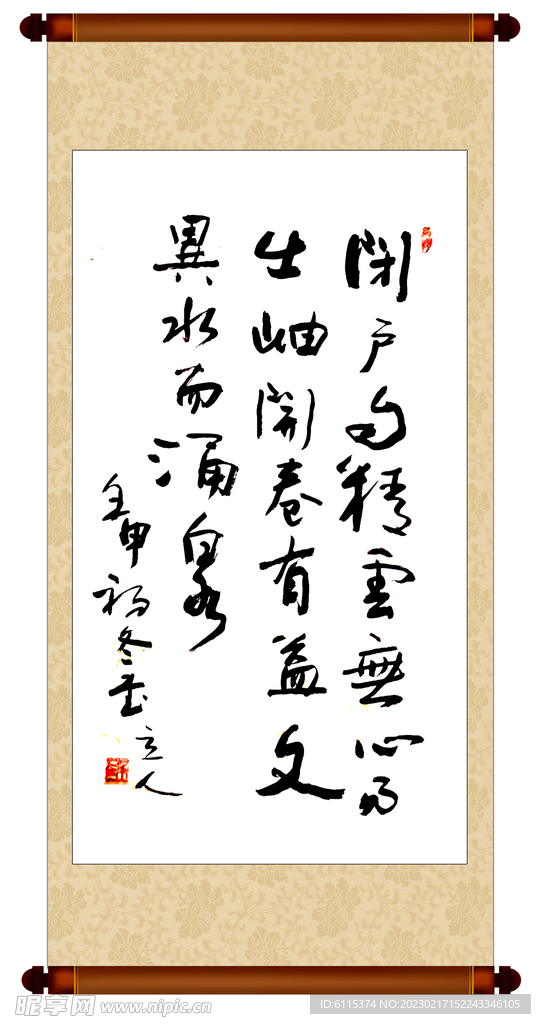 閉户自精雲無心以
出岫開卷有益文
異水而涌泉
壬申初冬
立人
昵享网 www.nipic.cn
ID:6115374 NO:20230217152243346105